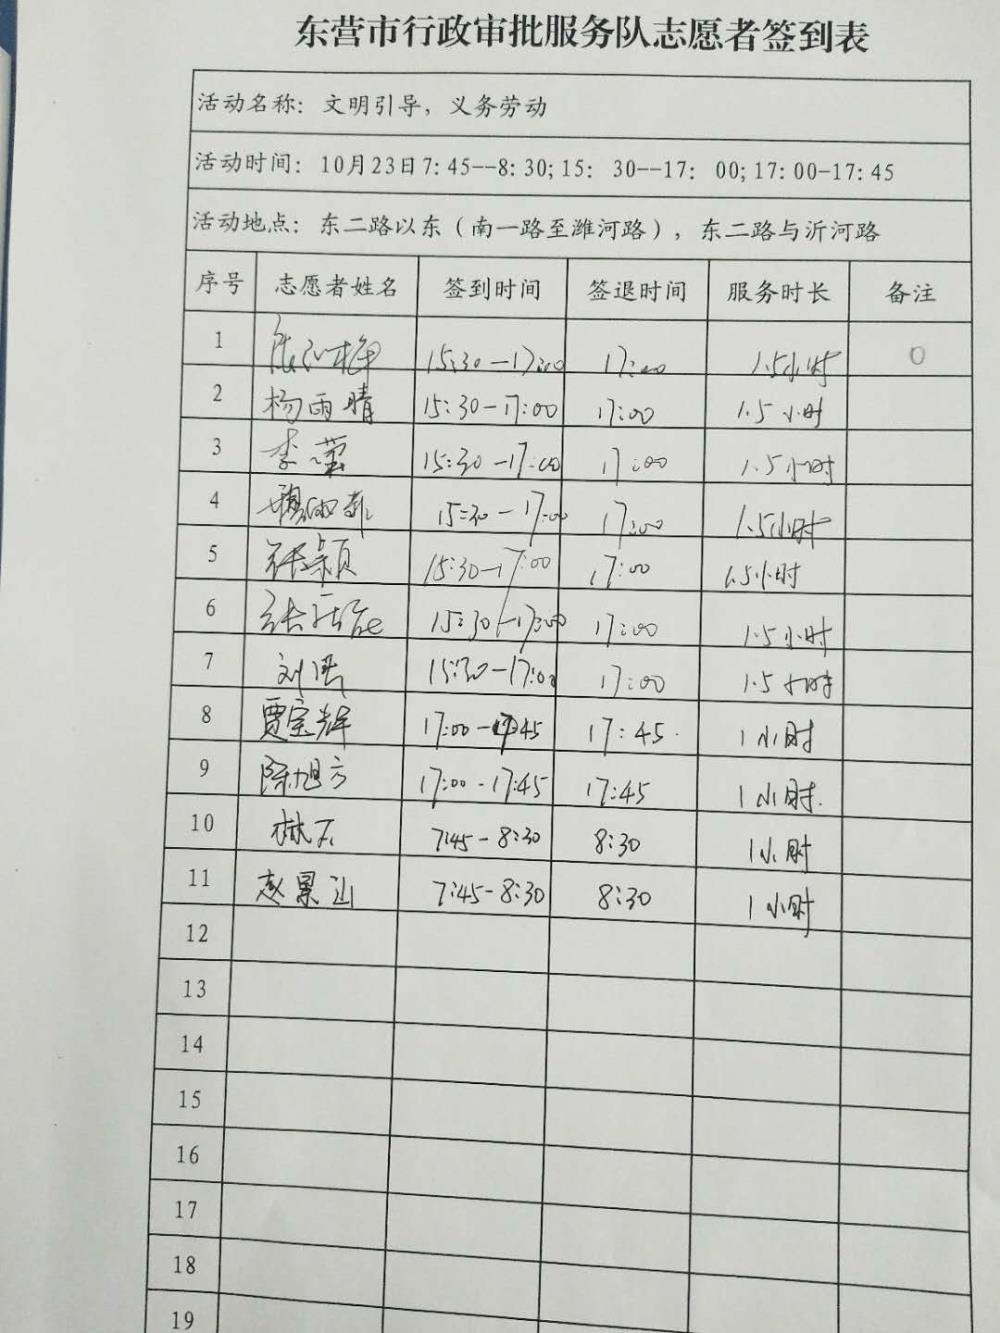 东营市行政审批服务队志愿者签到表
活动名称：文明引导，义务劳动
活动时间：10月23日7:45--8:30;15：30--17：00;17:00-17:45
活动地点：东二路以东（南一路至潍河路），东二路与沂河路
序号 志愿者姓名 签到时间 签退时间 服务时长 备注
1 15:30-17:00 17:00 1.5小时 0
2 杨雨晴 15:30-17:00 17:00 1.5小时
3 李莹 15:30-17:00 17:00 1.5小时
4 15:30-17:00 17:00 1.5小时
5 张颖 15:30-17:00 17:00 1.5小时
6 15:30-17:00 17:00 1.5小时
7 刘倩 15:30-17:00 17:00 1.5小时
8 贾宝辉 17:00-17:45 17:45 1小时
9 陈旭方 17:00-17:45 17:45 1小时
10 7:45-8:30 8:30 1小时
11 7:45-8:30 8:30 1小时
12
13
14
15
16
17
18
19